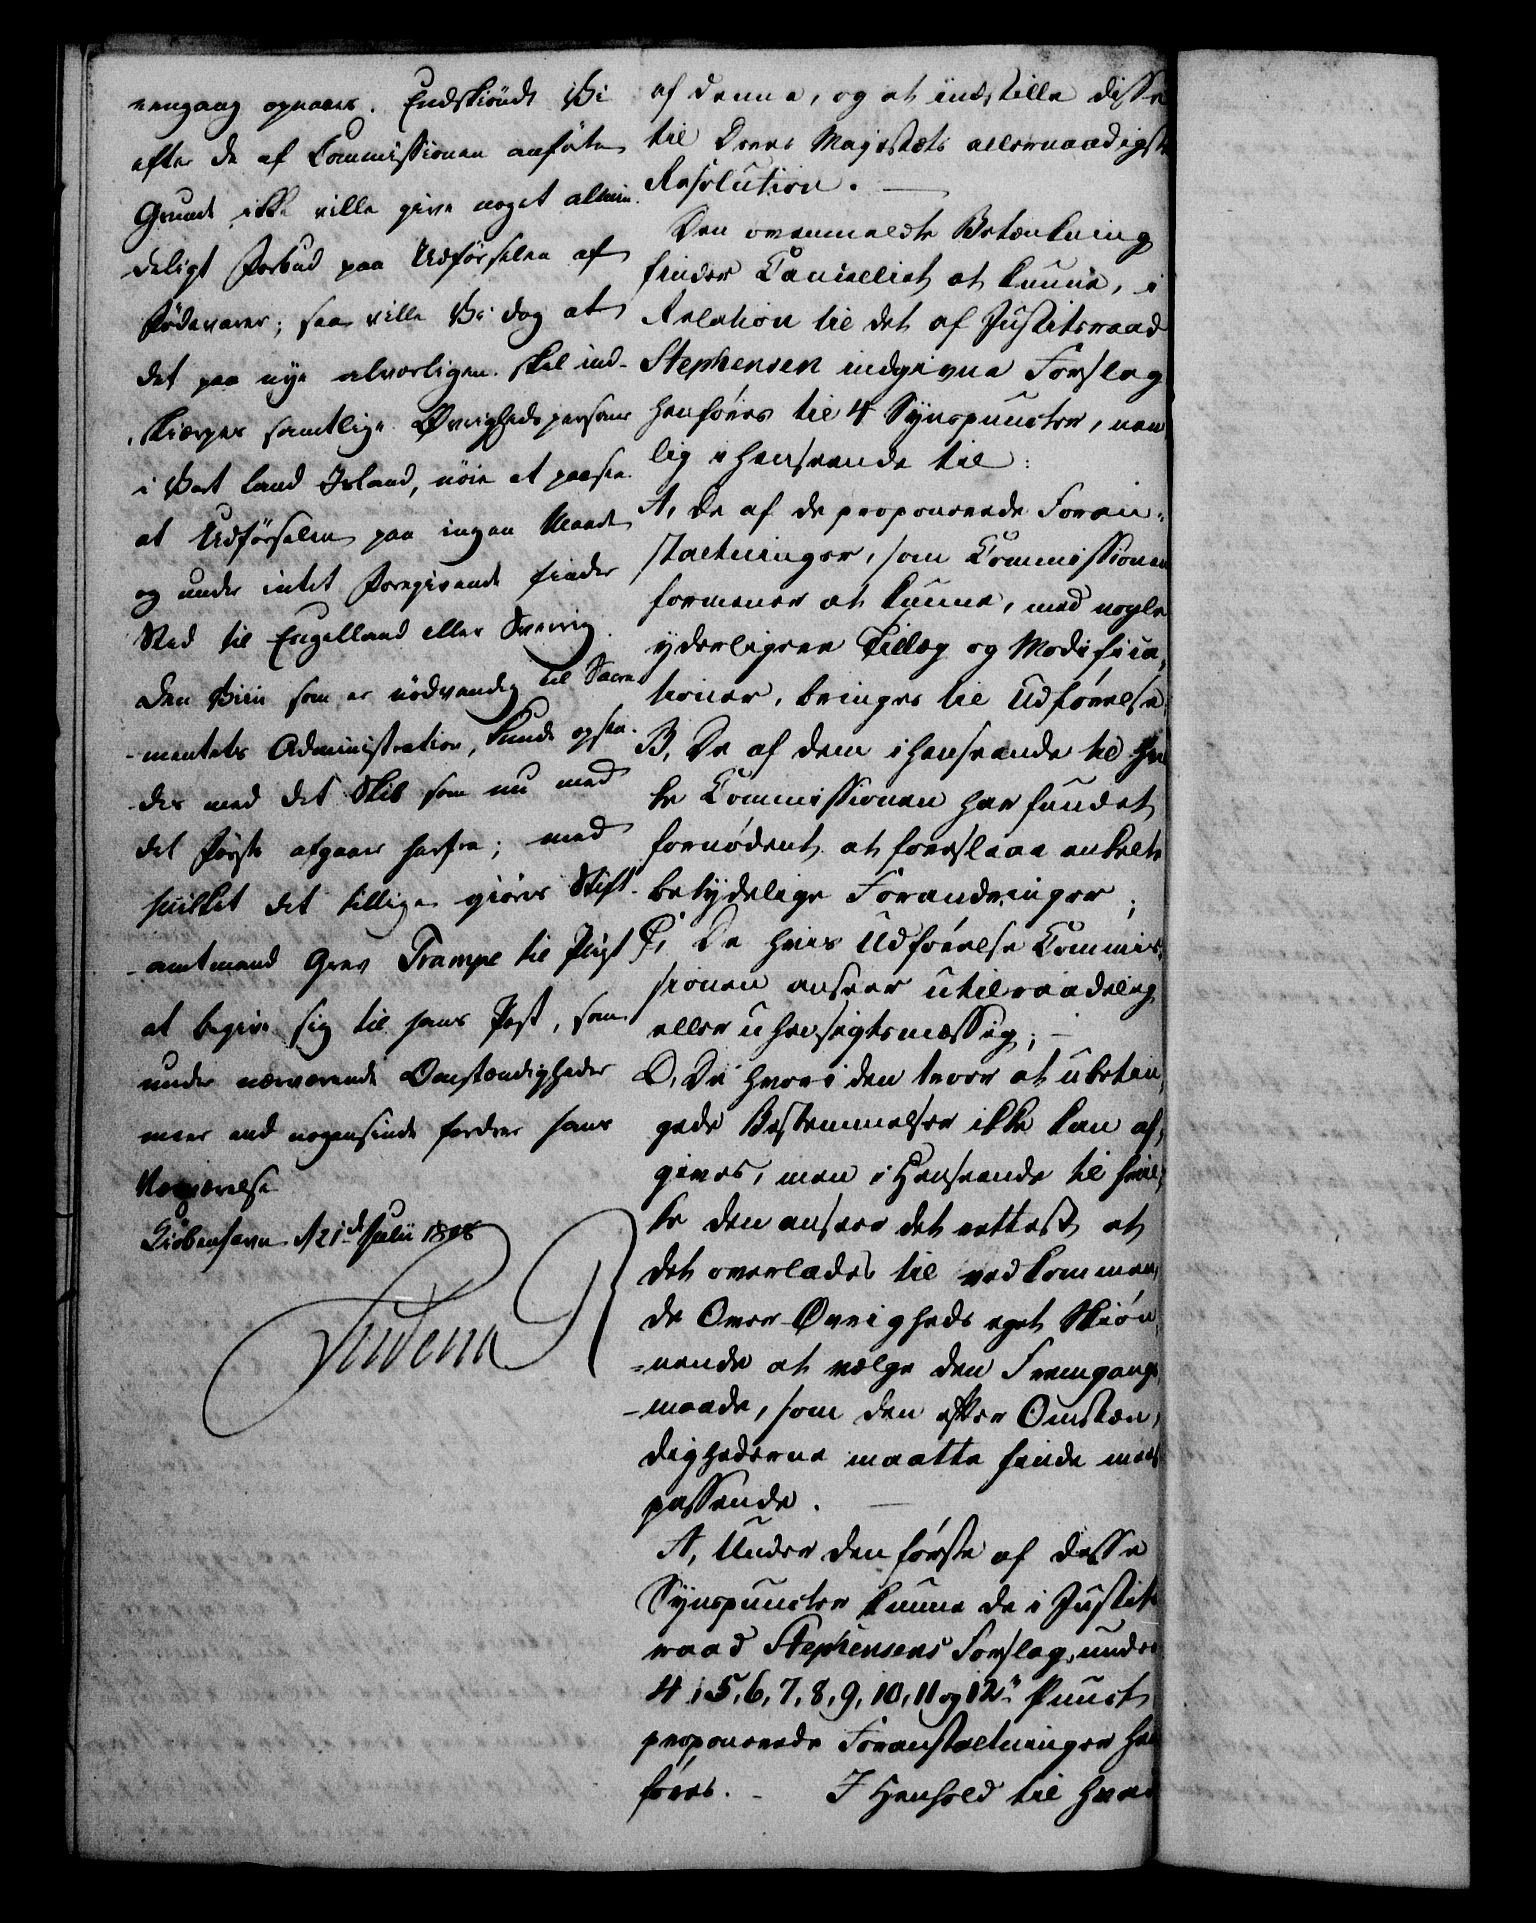 eengang opnaaer. Endskiöndt Vi
efter de af Commissionen anförte
Grunde ikke ville give noget almin-
deligt Forbud paa Udförselen af
Födevarer; saa ville Vi dog at
det paa nye alvorligen skal ind-
skiærpes samtlige Øvrighedspersoner
i Vort Land Island, nöie at paasee
at Udförselen paa ingen Maade
og under intet Foregivende finder
Sted til Engelland eller Sverrig.
Den Viin som er nödvendig til Sacra-
mentets Administration, kunde opsen-
des med det Skib som nu med
det förste afgaaer herfra; med
hvilket det tillige giöres Stift-
amtmand Grev Trampe til Pligt
at begive sig til hans Post, som
under nærværende Omstændigheder
meer end nogensinde fordrer hans
Nærværelse
Kiöbenhavn d 21de Julii 1808
Friderich R
af denne, og at indstille disse
til Deres Majestæts allernaadigste
Resolution. —
Den ovenmeldte Betænkning
finder Cancelliet at kunne, i
Relation til det af Justitsraad
Stephensen indgivne Forslag
henföres til 4 Synspuncter, nem
lig i Henseende til:
A, De af de proponerede Foran-
staltninger, som Commissionen
formener at kunne, med nogle
yderligere Tillæg og Modifica-
tioner, bringes til Udförelse,
B, De af dem i Henseende til hvil
ke Commissionen har fundet
fornödent at foreslaae enkelte
betydelige Forandringer;
C, De hvis Udförelse Commis-
sionen anseer utilraadelig
eller uhensigtsmæssig; —
D, De hvori den troer at ubetin-
gede Bestemmelser ikke kan af-
gives, men i Henseende til hvil-
ke den anseer det rettest at
det overlades til vedkommen-
de Over-Øvrigheds eget Skiön-
nende at vælge den Fremgangs-
maade, som den efter Omstæn-
dighederne maatte finde meest
passende. —
A, Under den förste af disse
Synspuncter kunne de i Justits
raad Stephensens Forslag, under
4, 5, 6, 7, 8, 9, 10, 11 og 12te Punct
proponerede Foranstaltninger hen
föres. – I Henhold til hvad